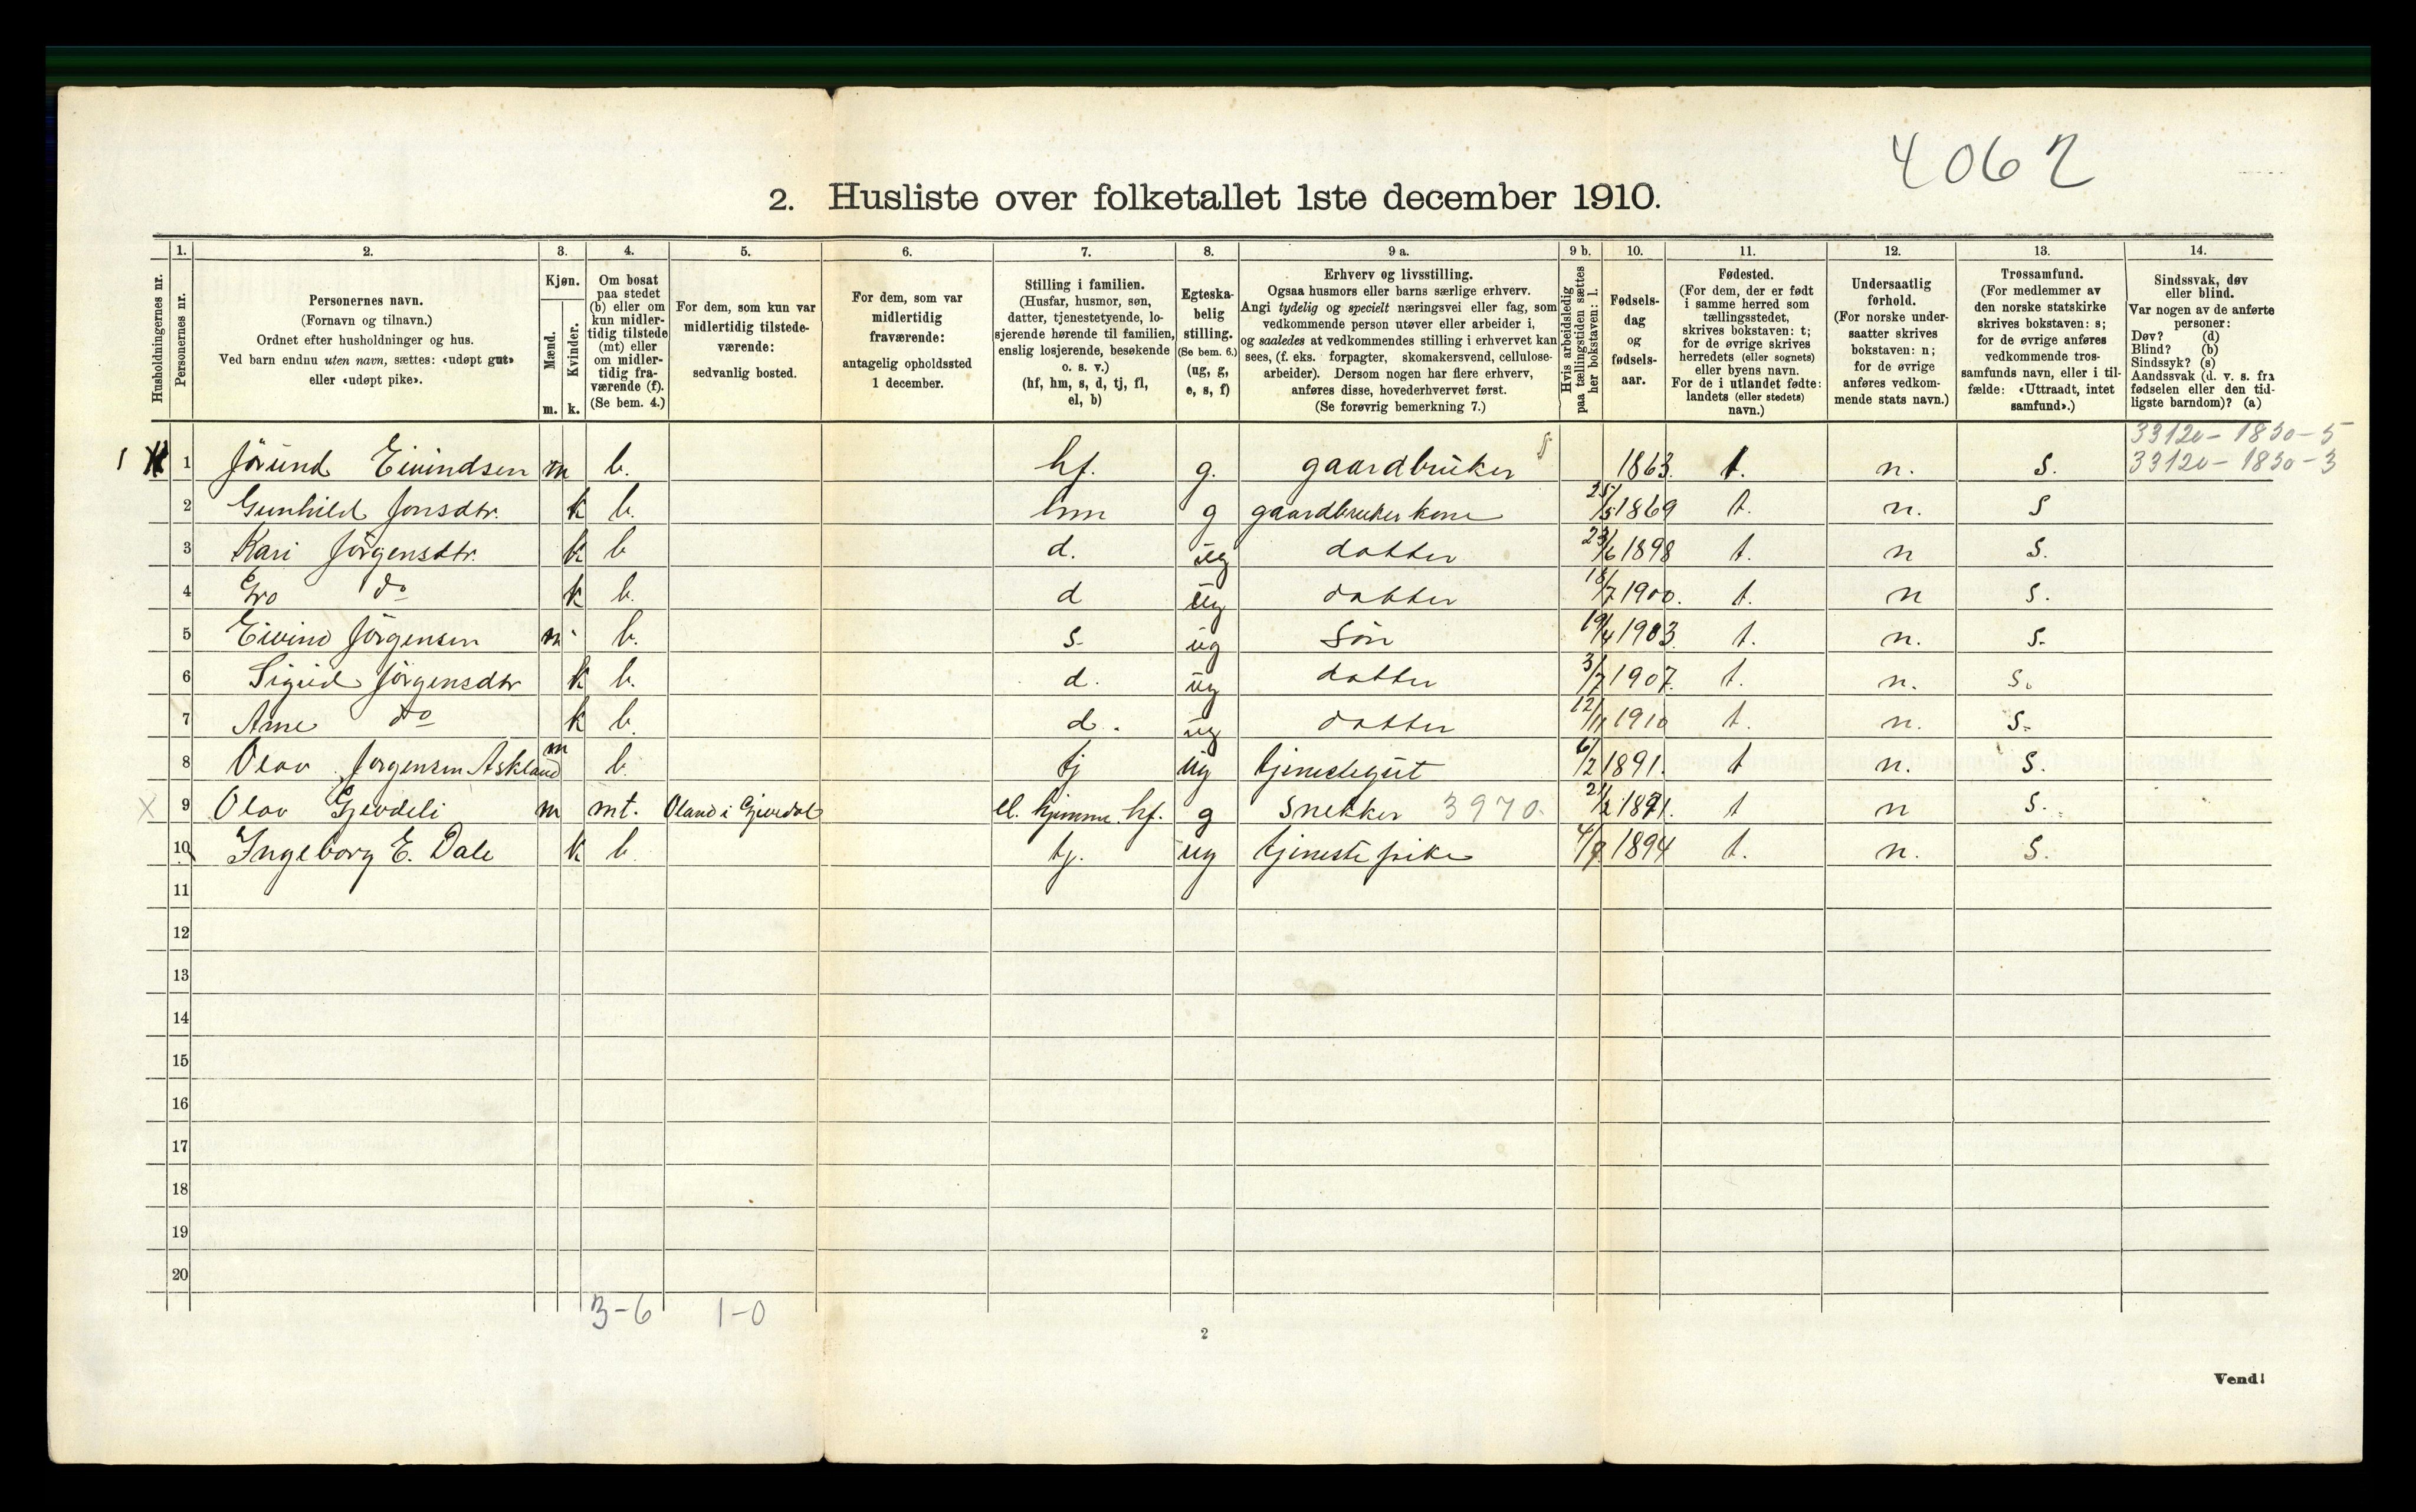 4062
2. Husliste over folketallet 1ste december 1910.
Husholdningernes nr.
1. Personernes nr.
2. Personernes navn.
(Fornavn og tilnavn.)
Ordnet efter husholdninger og hus.
Ved barn endnu uten navn, sættes: «udøpt gut»
eller «udøpt pike».
3. Kjøn.
Mænd. m.
Kvinder. k.
4. Om bosat
paa stedet
(b) eller om
kun midler-
tidig tilstede
(mt) eller
om midler-
tidig fra-
værende (f).
(Se bem. 4.)
5. For dem, som kun var
midlertidig tilstede-
værende:
sedvanlig bosted.
6. For dem, som var
midlertidig
fraværende:
antagelig opholdssted
1 december.
7. Stilling i familien.
(Husfar, husmor, søn,
datter, tjenestetyende, lo-
sjerende hørende til familien,
enslig losjerende, besøkende
o. s. v.)
(hf, hm, s, d, tj, fl,
el, b)
8. Egteska-
belig
stilling.
(Se bem. 6.)
(ug, g,
e, s, f)
9 a. Erhverv og livsstilling.
Ogsaa husmors eller barns særlige erhverv.
Angi tydelig og specielt næringsvei eller fag, som
vedkommende person utøver eller arbeider i,
og saaledes at vedkommendes stilling i erhvervet kan
sees, (f. eks. forpagter, skomakersvend, cellulose-
arbeider). Dersom nogen har flere erhverv,
anføres disse, hovederhvervet først.
(Se forøvrig bemerkning 7.)
9 b. Hvis arbeidsledig
paa tællingstiden sættes
her bokstaven: l.
10. Fødsels-
dag
og
fødsels-
aar.
11. Fødested.
(For dem, der er født
i samme herred som
tællingsstedet,
skrives bokstaven: t;
for de øvrige skrives
herredets (eller sognets)
eller byens navn.
For de i utlandet fødte:
landets (eller stedets)
navn.)
12. Undersaatlig
forhold.
(For norske under-
saatter skrives
bokstaven: n;
for de øvrige
anføres vedkom-
mende stats navn.)
13. Trossamfund.
(For medlemmer av
den norske statskirke
skrives bokstaven: s;
for de øvrige anføres
vedkommende tros-
samfunds navn, eller i til-
fælde: «Uttraadt, intet
samfund».)
14. Sindssvak, døv
eller blind.
Var nogen av de anførte
personer:
Døv? (d)
Blind? (b)
Sindssyk? (s)
Aandssvak (d. v. s. fra
fødselen eller den tid-
ligste barndom)? (a)
33120 - 1830 - 5
1 1 Jörund Eivindsen m b. hf. g. gaardbruker 1863. t. n. s. 33120 - 1830 - 3
2 Gunhild Jonsdtr. k b. hm g gaardbruker kone 25/5 1869 t. n. s
3 Kari Jörgensdtr. k b d. ug datter 23/6 1898 t. n s.
4 Gro do k b. d ug datter 18/7 1900. t. n s.
5 Eivind Jörgensen m b. s. ug Sön 19/4 1903 t. n. s.
6 Sigrid Jörgensdtr k b. d. ug datter 3/7 1907. t. n. s.
7 Arne do k b. d. ug datter 12/11 1910 t. n. s.
8 Olav Jorgensen Askland m b. tj ug tjenestegut 6/2 1891. t n. s.
X 9 Olav Gjevdeli m mt. Oland i Gjevdal el. hjemme hf. g Snekker 3970. 21/2 1871. t n s.
10 Ingeborg E. Dale k b tj. ug tjenestepike 4/9 1894 t. n. s.
11
12
13
14
15
16
17
18
19
20
3-6 1-0
2
Vend!